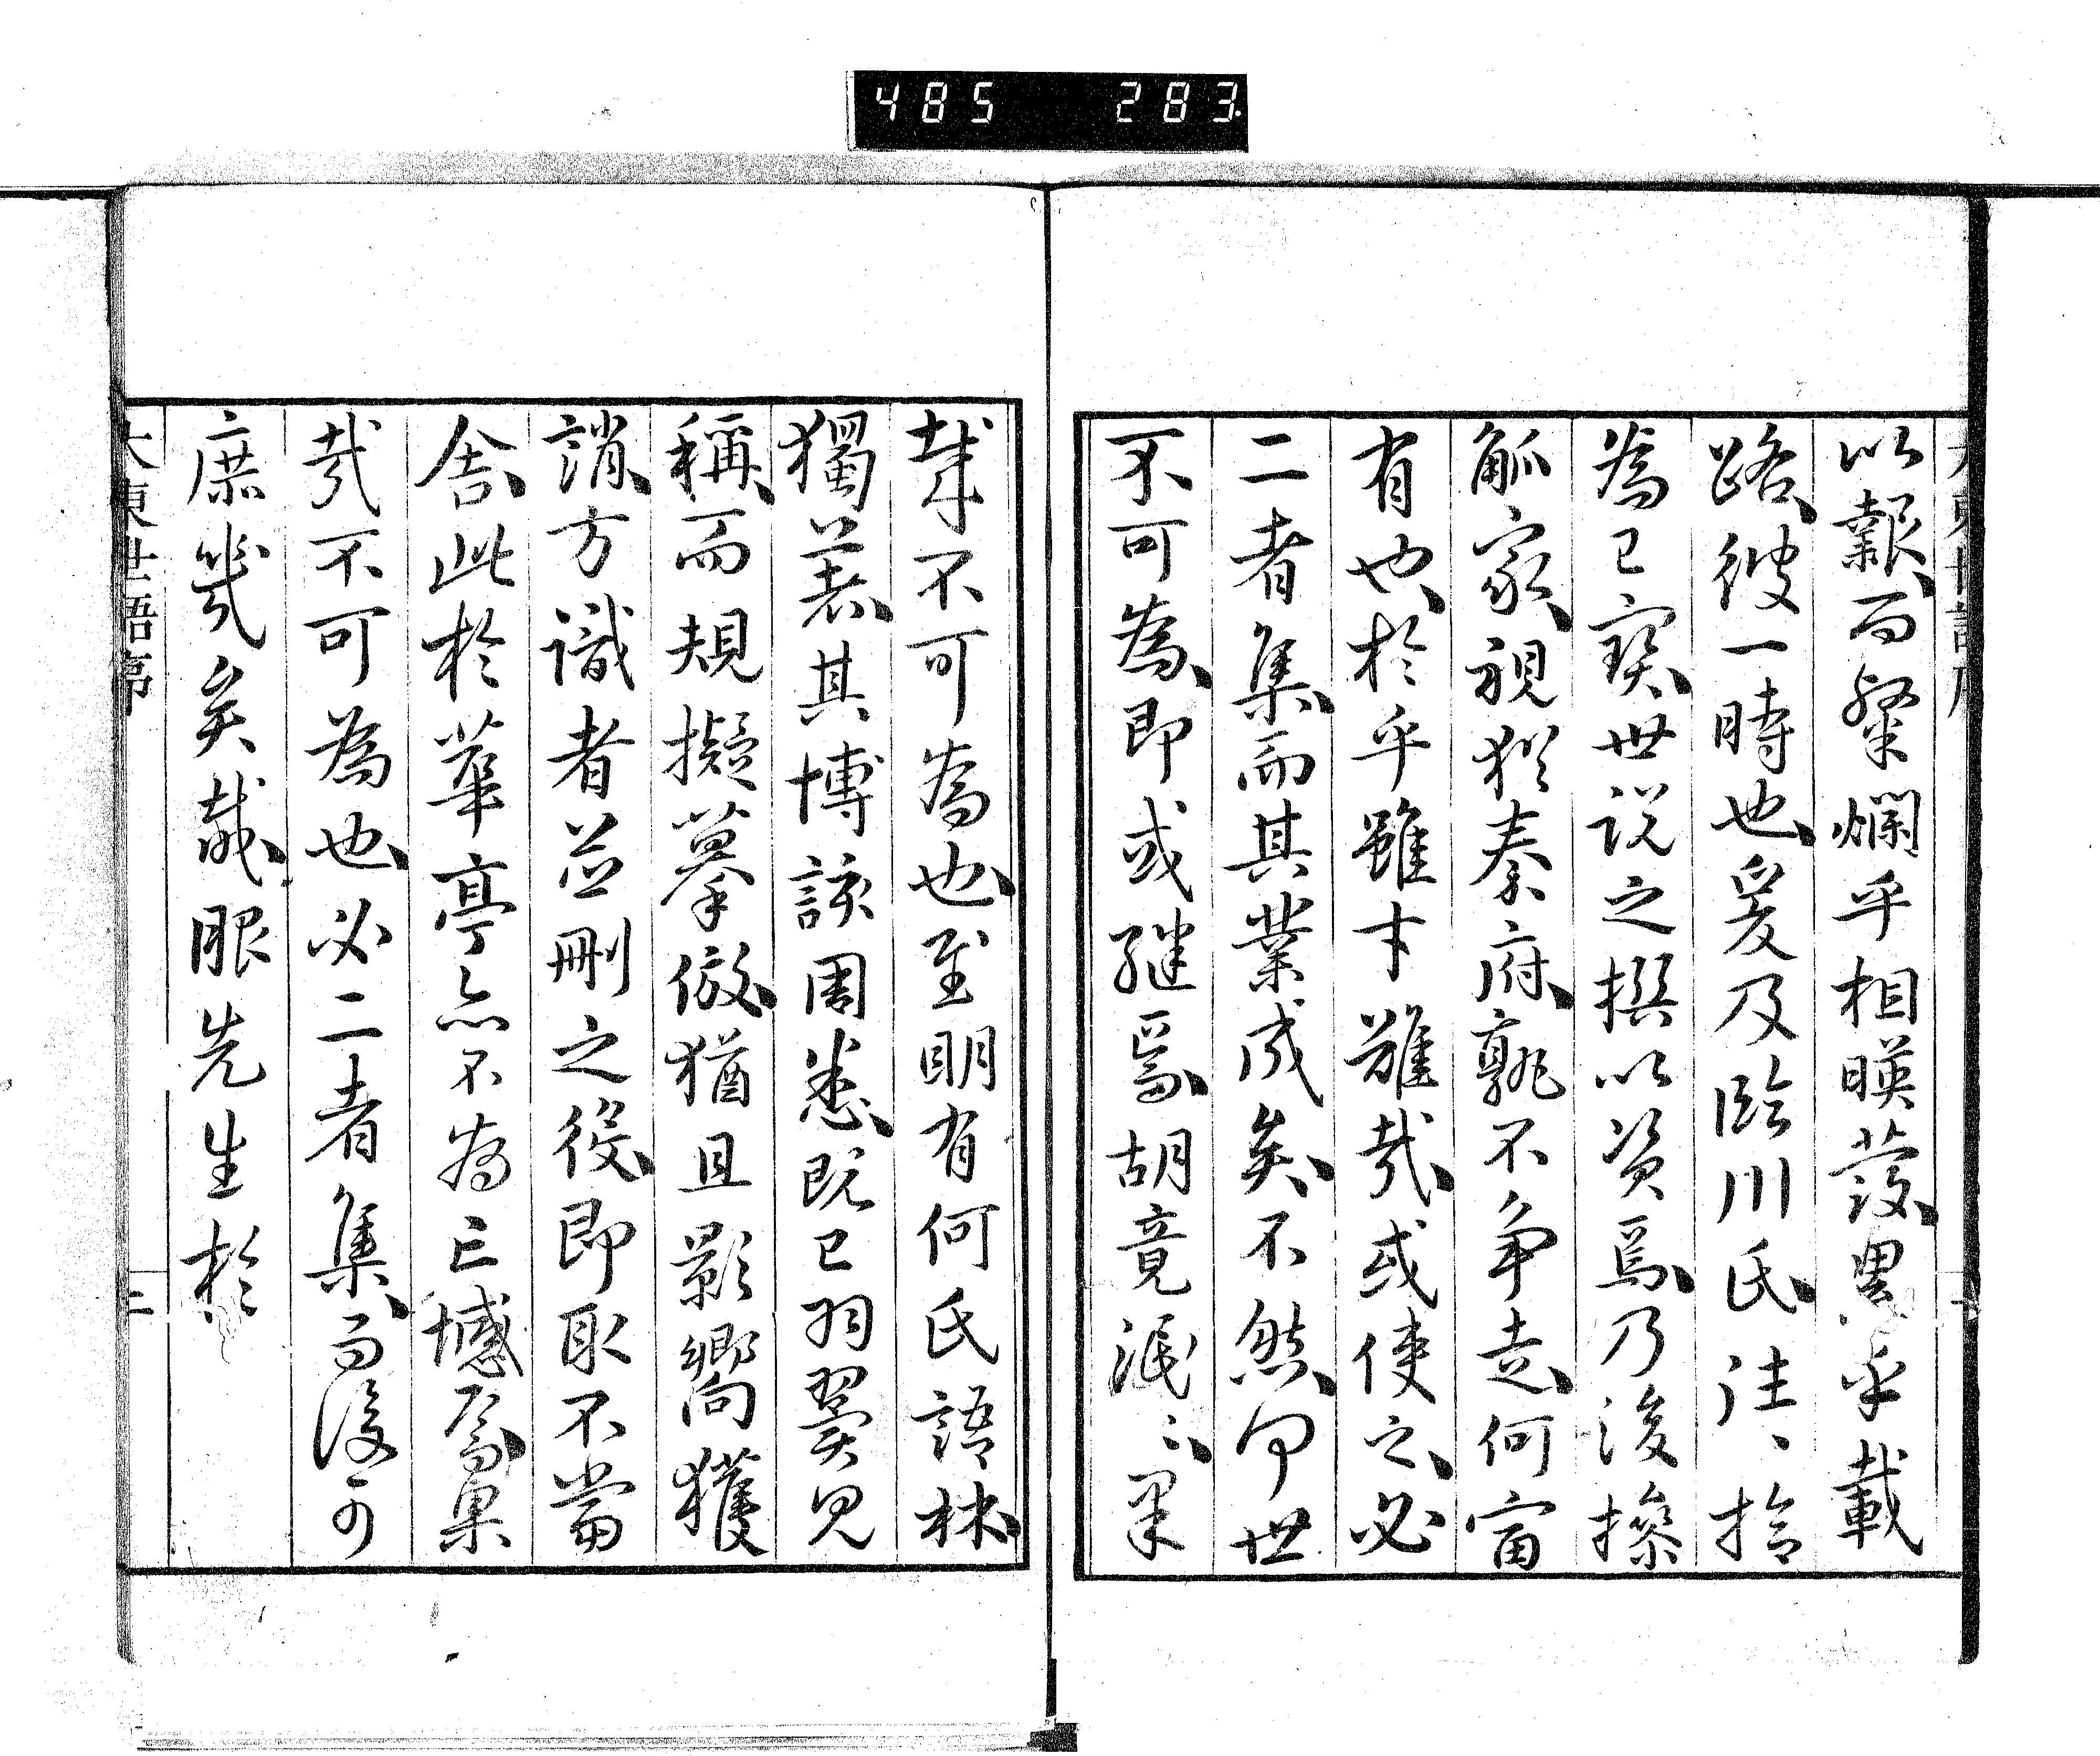 485 283
大東世語序
以報而粲爛乎相暎發異乎載
路彼一時也爰及臨川氏注、拾
為已實世說之撰以資焉乃後操
觚家視猶秦府孰不争走何甯
有也於乎雖才難哉或使之必
二者集而其業成矣不然世
不可為即或継焉胡竟泯〻果
哉不可為也至明有何氏語林
獨著其博該周悉既已羽翼見
稱而規擬摹倣猶且影嚮獲
誚方識者並刪之役即取不當
舍此於華亭亦不為亡憾焉果
哉不可為也必二者集而後可
庶幾矣哉眼先生於
大東世語序
二